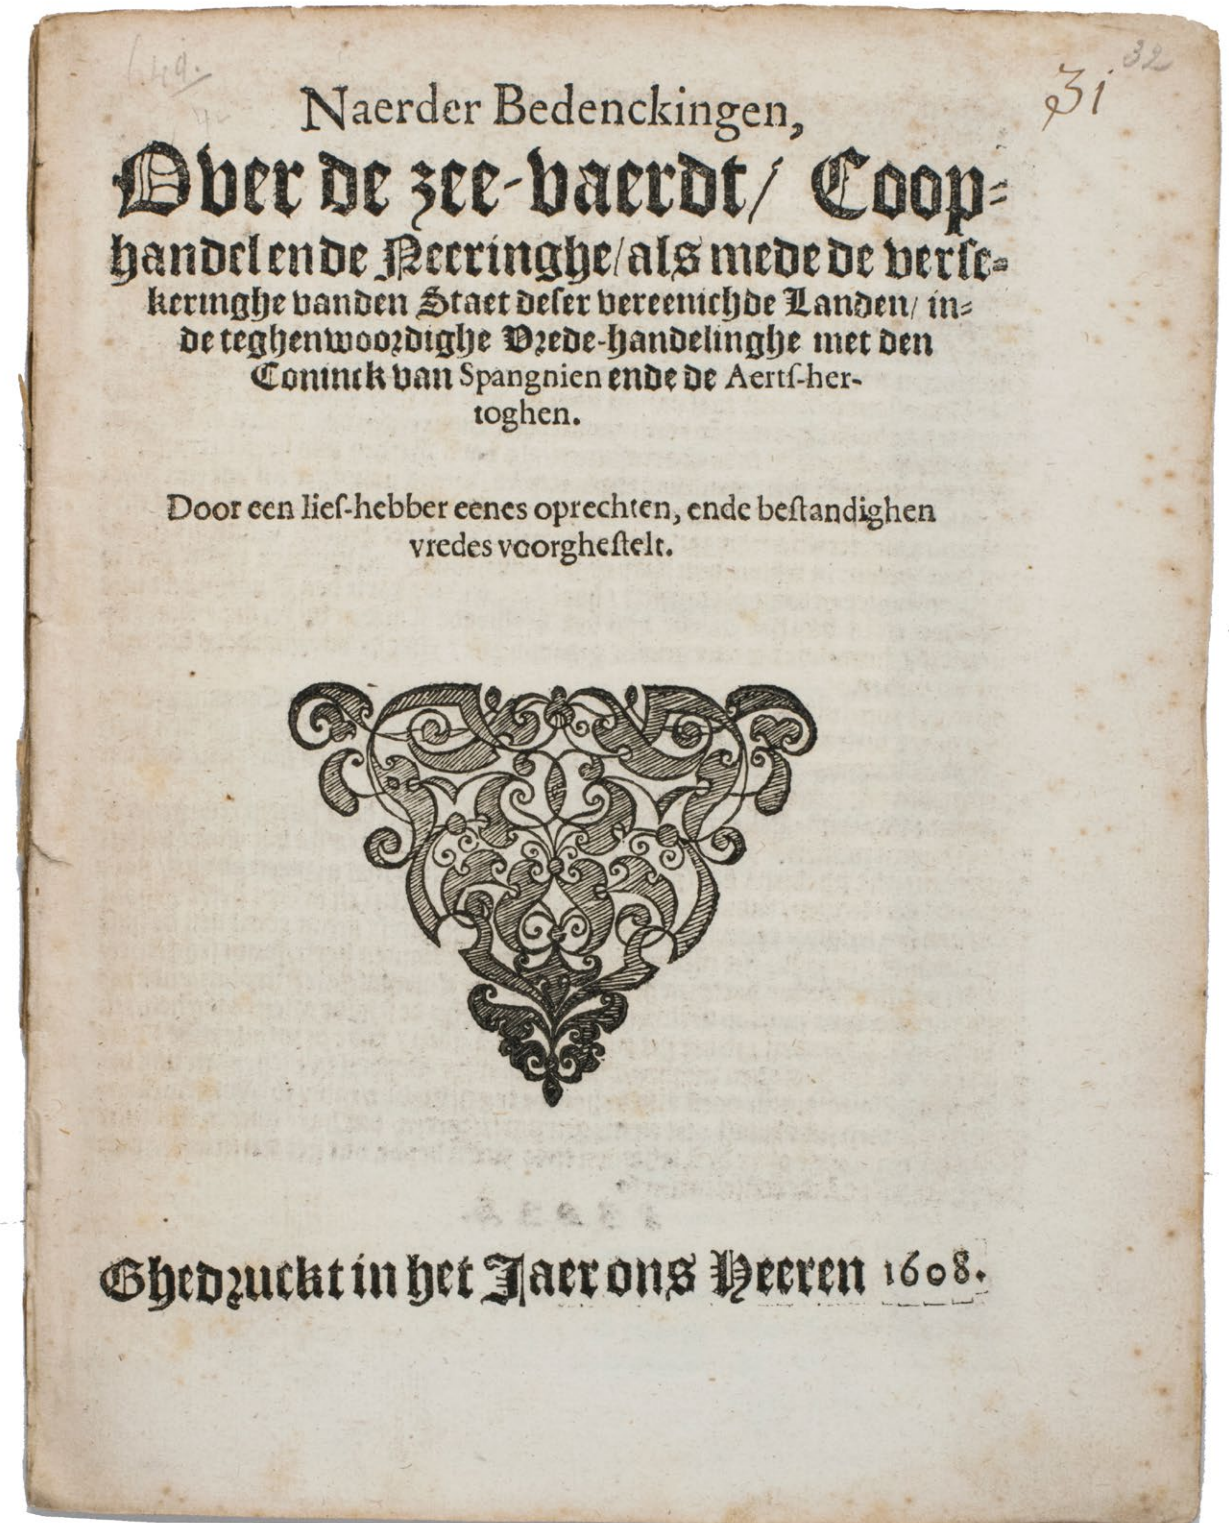 31
32
Naerder Bedenckingen,
Over de zee-vaerdt/ Coop-
handel ende Neeringhe/ als mede de verse-
keringhe vanden Staet deser vereenichde Landen/ in-
de teghenwoordighe Vrede-handelinghe met den
Coninck van Spangnien ende de Aertſ-her-
toghen.
Door een lieſ-hebber eenes oprechten, ende beſtandighen
vredes voorgheſtelt.
Ghedruckt in het Jaer ons Heeren 1608.